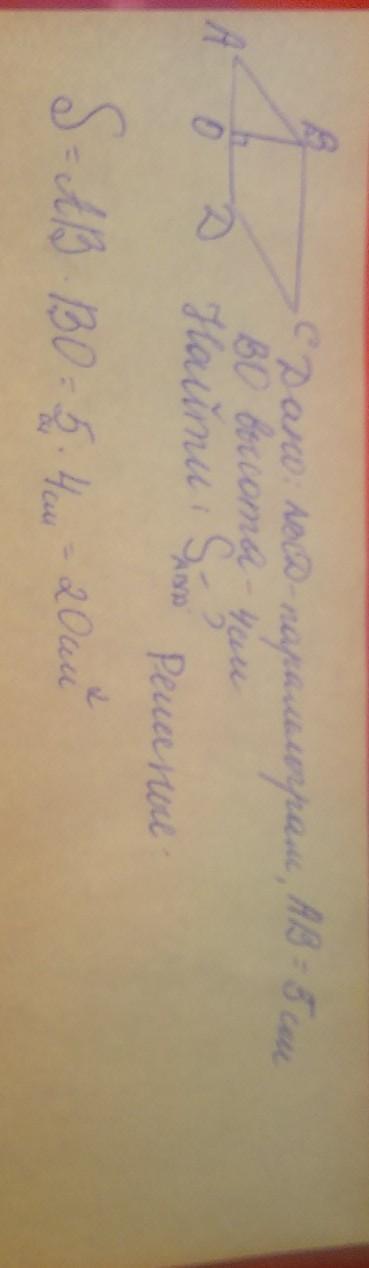 A
B
O
D
C
Дано: ABCD - паралелограм, AB = 5 см
BO высота - 4см
Найти: S - ?
Решение:
S = AB · BO = 5 см · 4 см = 20 см²